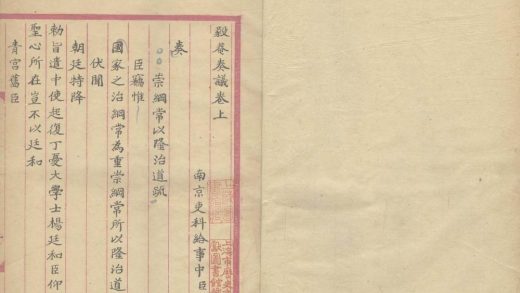 毅菴奏議卷上
南京吏科給事中臣
奏
崇綱常以隆治道疏
臣竊惟
國家之治綱常為重崇綱常所以隆治道
伏聞
朝廷特降
勑旨遣中使起復丁憂大學士楊廷和臣仰
聖心所在豈不以廷和
青宮舊臣
上海市歷史文
獻圖書館藏